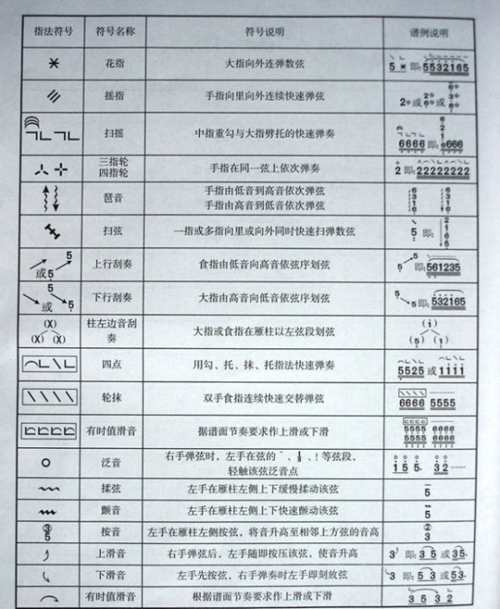 指法符号 符号名称 符号说明 谱例说明
花指 大指向外连弹数弦 5 即 5532165
摇指 手指向里向外连续快速弹弦 2 或 或
扫摇 中指重勾与大指劈托的快速弹奏 6666 即 6666
三指轮
四指轮 手指在同一弦上依次弹奏 2 即 22222222
琶音 手指由低音到高音依次弹弦
手指由低音到高音依次弹弦
6 3 1 6 即 6 3 1 6
扫弦 一指或多指向里或向外同时快速扫弹数弦 5 即
或5 5 上行刮奏 食指由低音向高音依弦序划弦 5 5 即 561235
或5 5 下行刮奏 大指由高音向低音依弦序划弦 5 5 即 532165
(X)
(X) (X) 柱左边音刮奏 大指或食指在雁柱以左弦段划弦 (i)
(5) (1)
四点 用勾、托、抹、托指法快速弹奏 5525 或 1111
轮抹 双手食指连续快速交替弹弦 6666 5555
有时值滑音 据谱面节奏要求作上滑或下滑 5555 6666
5555 6666
泛音 右手弹弦时，左手在弦的 等弦段，
轻触该弦泛音点 1 5 5. 3 2
揉弦 左手在雁柱左侧上下缓慢揉动该弦 5
颤音 左手在雁柱左侧上下快速颤动该弦 5
③
5 按音 左手在雁柱左侧按弦，将音升高至相邻上方弦的音高 ②
3
上滑音 右手弹弦后，左手随即按压该弦，使音升高 3 即 3 5 或 35
下滑音 左手先按弦，右手弹奏时左手即刻放弦 5 即 5 3 或 53
有时值滑音 根据谱面节奏要求作上滑或下滑 3 5 3 2